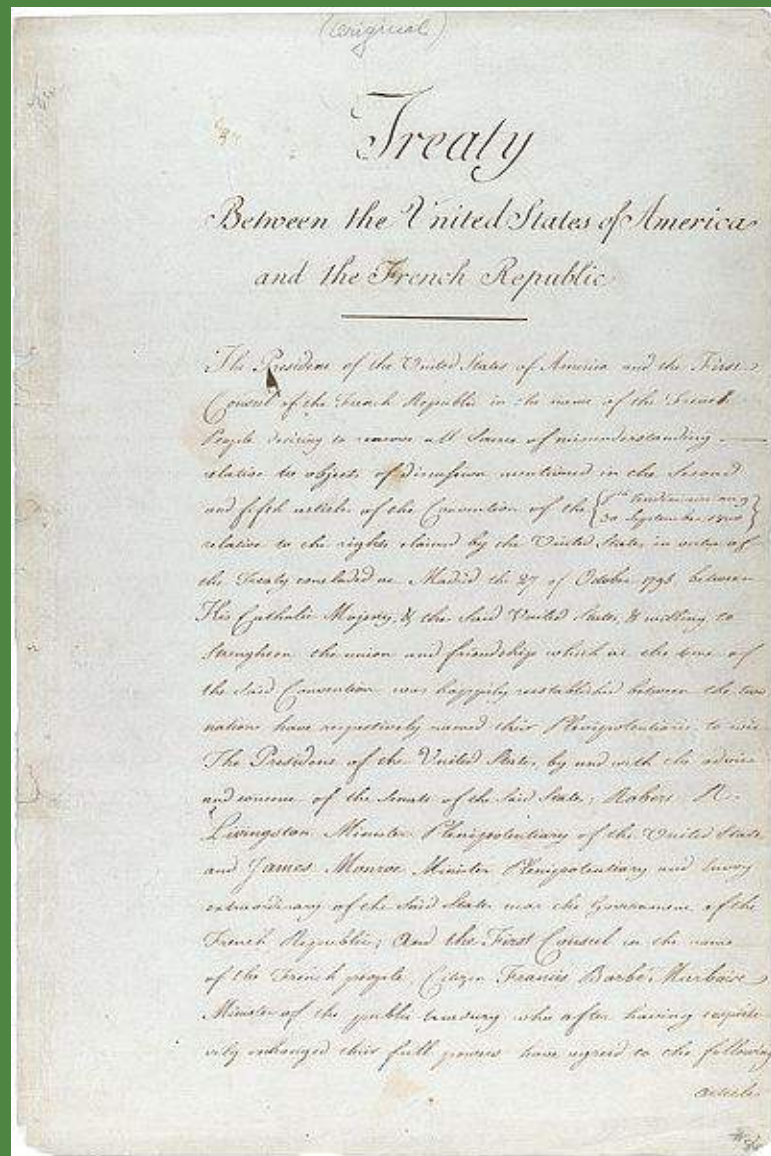 (Original)
Treaty
Between the United States of America
and the French Republic
The President of the United States of America and the First
Consul of the French Republic in the name of the French
People desiring to remove all Source of misunderstanding
relative to objects of discussion mentioned in the Second
and fifth articles of the Convention of the { 8th Vendémiaire an 9
30 September 1800 }
relative to the rights claimed by the United States in virtue of
the Treaty concluded at Madrid the 27 of October 1795, between
His Catholic Majesty, & the Said United States, & willing to
Strengthen the union and friendship which at the time of
the Said Convention was happily reestablished between the two
nations have respectively named their Plenipotentiaries to wit
The President of the United States, by and with the advice
and consent of the Senate of the Said States; Robert R.
Livingston Minister Plenipotentiary of the United States
and James Monroe Minister Plenipotentiary and Envoy
extraordinary of the Said States near the Government of the
French Republic; And the First Consul in the name
of the French people, Citizen Francis Barbé Marbois
Minister of the public treasury who after having respecti-
vely exchanged their full powers have agreed to the following
articles